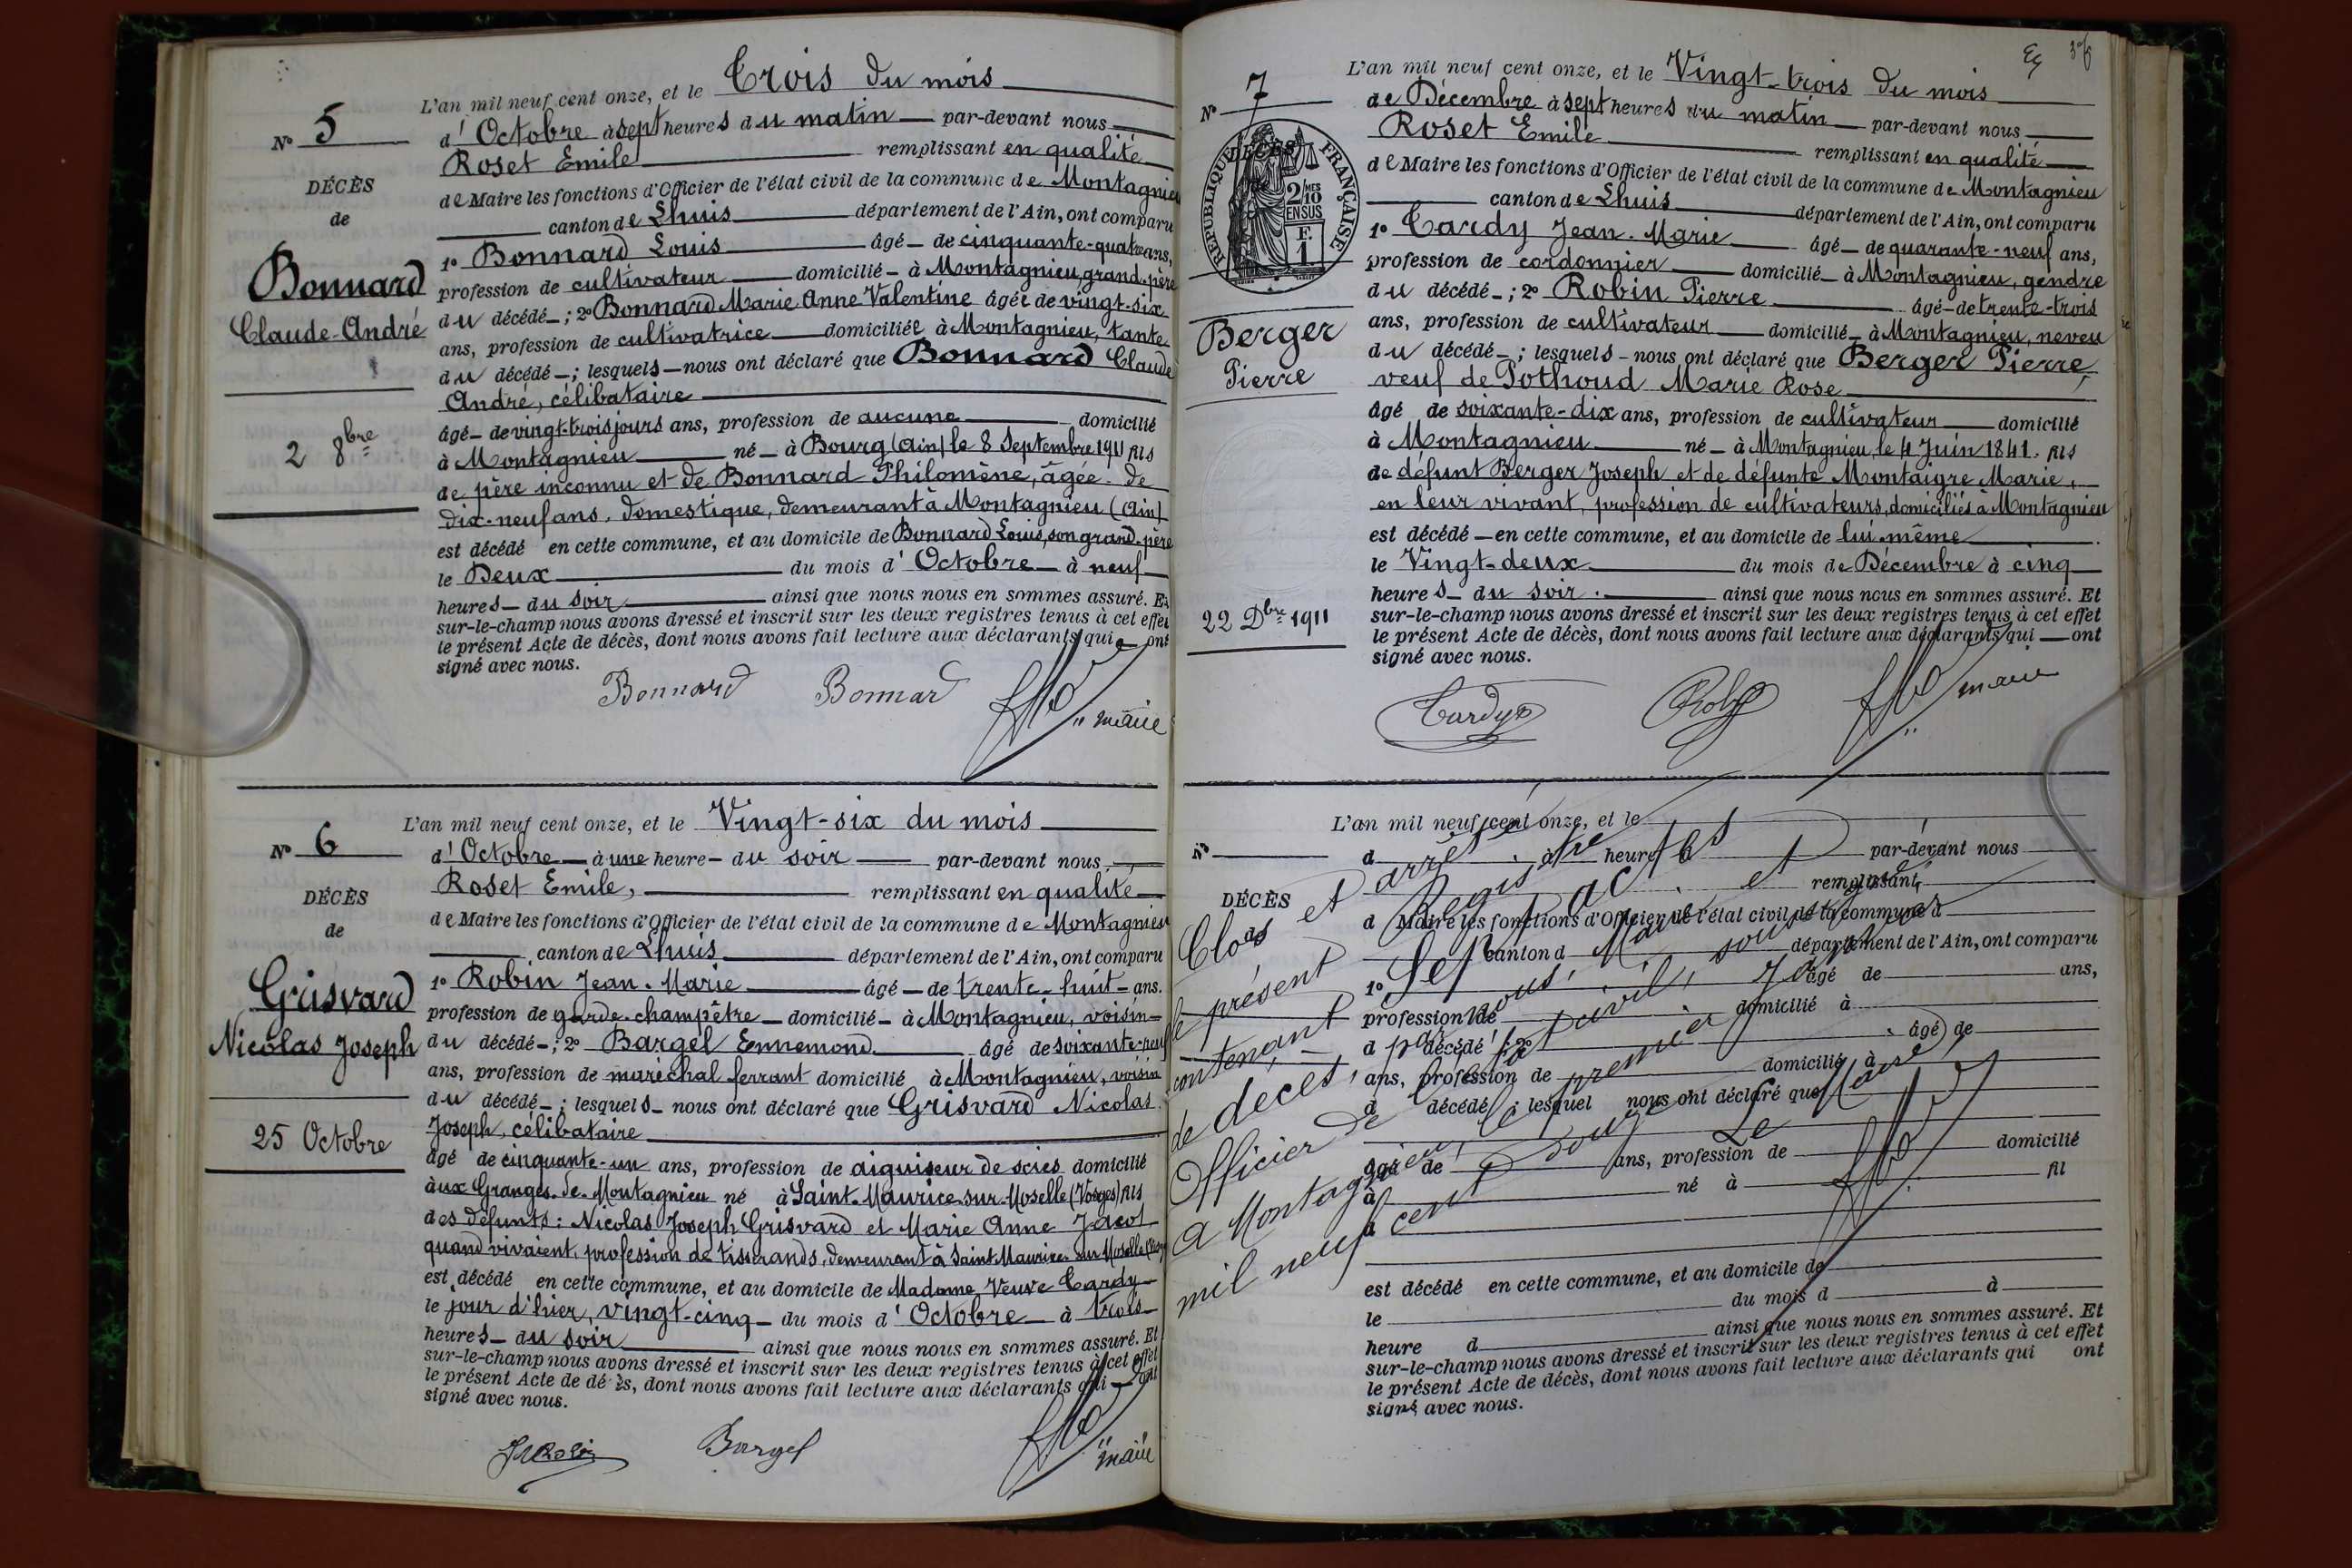 N° 5
DÉCÈS
de
Bonnard
Claude-André
2 8bre
L'an mil neuf cent onze, et le Trois du mois
d'Octobre à sept heures du matin par-devant nous
Roset Emile remplissant en qualité
de Maire les fonctions d'Officier de l'état civil de la commune de Montagnieu
canton de Lhuis département de l'Ain, ont comparu
1° Bonnard Louis âgé de cinquante-quatre ans,
profession de cultivateur domicilié à Montagnieu, grand-père
du décédé ; 2° Bonnard Marie Anne Valentine âgée de vingt-six
ans, profession de cultivatrice domiciliée à Montagnieu, tante
du décédé ; lesquels nous ont déclaré que Bonnard Claude
André, célibataire
âgé de vingt-trois jours ans, profession de aucune domicilié
à Montagnieu né à Bourg (Ain) le 8 Septembre 1911 fils
de père inconnu et de Bonnard Philomène, âgée de
dix-neuf ans, domestique, demeurant à Montagnieu (Ain)
est décédé en cette commune, et au domicile de Bonnard Louis, son grand-père
le Deux du mois d'Octobre à neuf
heures du soir ainsi que nous nous en sommes assuré. Et
sur-le-champ nous avons dressé et inscrit sur les deux registres tenus à cet effet
le présent Acte de décès, dont nous avons fait lecture aux déclarants qui ont
signé avec nous.
Bonnard Bonnard maire
N° 6
DÉCÈS
de
Grisvard
Nicolas Joseph
25 Octobre
L'an mil neuf cent onze, et le Vingt-six du mois
d'Octobre à une heure du soir par-devant nous
Roset Emile, remplissant en qualité
de Maire les fonctions d'Officier de l'état civil de la commune de Montagnieu
canton de Lhuis département de l'Ain, ont comparu
1° Robin Jean-Marie âgé de trente-huit ans.
profession de garde-champêtre domicilié à Montagnieu, voisin
du décédé ; 2° Bargel Ennemond âgé de soixante-neuf
ans, profession de maréchal ferrant domicilié à Montagnieu, voisin
du décédé ; lesquels nous ont déclaré que Grisvard Nicolas
Joseph, célibataire
âgé de cinquante-un ans, profession de aiguiseur de scies domicilié
aux Granges-de-Montagnieu né à Saint-Maurice-sur-Moselle (Vosges) fils
des défunts: Nicolas Joseph Grisvard et Marie Anne Jacot
quand vivaient, profession de tisserands, demeurant à Saint Maurice-sur Moselle
est décédé en cette commune, et au domicile de Madame Veuve Cardy
le jour d'hier, vingt-cinq du mois d'Octobre à trois
heures du soir ainsi que nous nous en sommes assuré. Et
sur-le-champ nous avons dressé et inscrit sur les deux registres tenus à cet effet
le présent Acte de décès, dont nous avons fait lecture aux déclarants qui ont
signé avec nous.
Bargel maire
N° 7
RÉPUBLIQUE FRANÇAISE
DÉCÈS
2/10 MES
EN SUS
F.
1
Berger
Pierre
22 Dbre 1911
L'an mil neuf cent onze, et le Vingt-trois du mois
de Décembre à sept heures du matin par-devant nous
Roset Emile remplissant en qualité
de Maire les fonctions d'Officier de l'état civil de la commune de Montagnieu
canton de Lhuis département de l'Ain, ont comparu
1° Cardy Jean-Marie âgé de quarante-neuf ans,
profession de cordonnier domicilié à Montagnieu, gendre
du décédé ; 2° Robin Pierre âgé de trente-trois
ans, profession de cultivateur domicilié à Montagnieu, neveu
du décédé ; lesquels nous ont déclaré que Berger Pierre,
veuf de Pothoud Marie Rose
âgé de soixante-dix ans, profession de cultivateur domicilié
à Montagnieu né à Montagnieu, le 4 Juin 1841. fils
de défunt Berger Joseph et de défunte Montaigre Marie,
en leur vivant, profession de cultivateurs, domiciliés à Montagnieu
est décédé en cette commune, et au domicile de lui-même
le Vingt-deux du mois de Décembre à cinq
heures du soir. ainsi que nous nous en sommes assuré. Et
sur-le-champ nous avons dressé et inscrit sur les deux registres tenus à cet effet
le présent Acte de décès, dont nous avons fait lecture aux déclarants qui ont
signé avec nous.
Cardy maire
N°
DÉCÈS
L'an mil neuf cent onze, et le
d à heure d par-devant nous
remplissant
d Maire les fonctions d'Officier de l'état civil de la commune d
canton d département de l'Ain, ont comparu
1° âgé de ans,
profession de domicilié à
d décédé ; 2° âgé de
ans, profession de domicilié à
d décédé ; lesquel nous ont déclaré que
âgé de ans, profession de domicilié
à né à fil
d
est décédé en cette commune, et au domicile de
le du mois d à
heure d ainsi que nous nous en sommes assuré. Et
sur-le-champ nous avons dressé et inscrit sur les deux registres tenus à cet effet
le présent Acte de décès, dont nous avons fait lecture aux déclarants qui ont
signé avec nous.
Clos et arrêté
le présent Registre
contenant Sept actes
de décès, par nous, Maire et
Officier de l'état civil, soussigné,
A Montagnieu, le premier Janvier
mil neuf cent douze
Le Maire